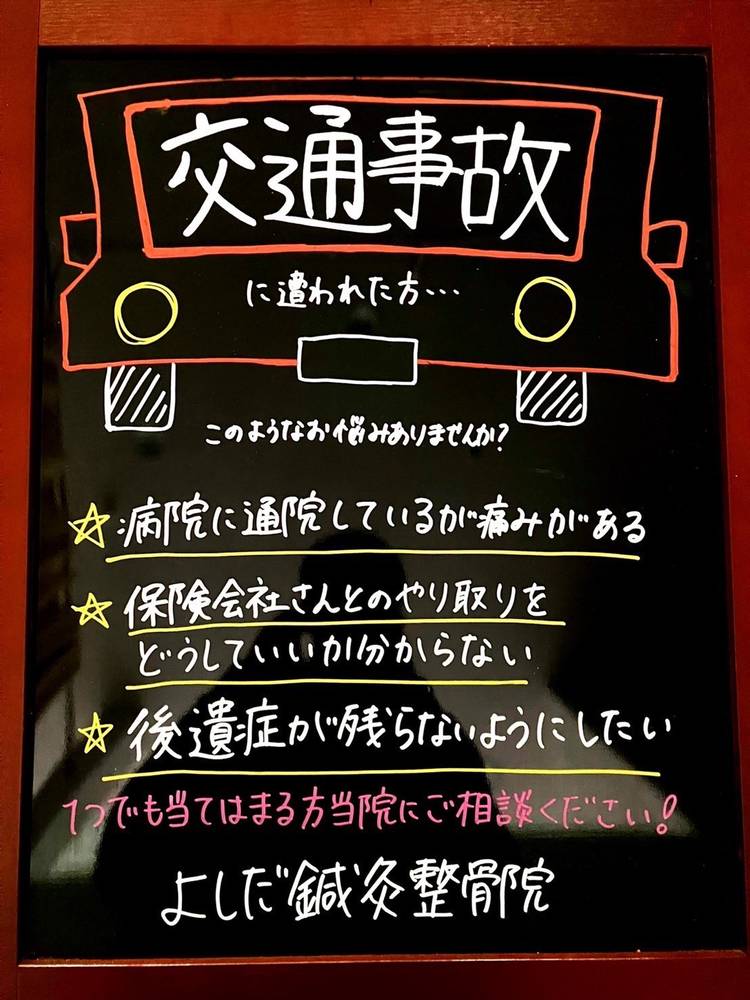 交通事故
に遭われた方…
このようなお悩みありませんか?
☆病院に通院しているが痛みがある
☆保険会社さんとのやり取りを
どうしていいか分からない
☆後遺症が残らないようにしたい
1つでも当てはまる方当院にご相談ください!
よしだ鍼灸整骨院